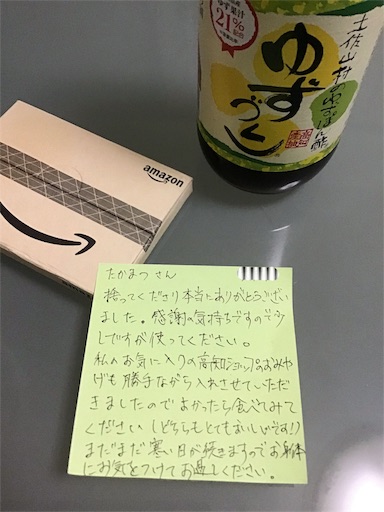 ゆず果汁
21%
土佐山村のゆずぽん酢
ゆず
づくし
amazon
たかまつ さん
拾ってくださり本当にありがとうござい
ました。感謝の気持ちですので少
しですが使ってください。
私のお気に入りの高知ショップのおみや
げも勝手ながら入れさせていただ
きましたのでよかったら食べてみて
ください(どちらもとてもおいしいです!)
まだまだ寒い日が続きますのでお身体
にお気をつけてお過しください。